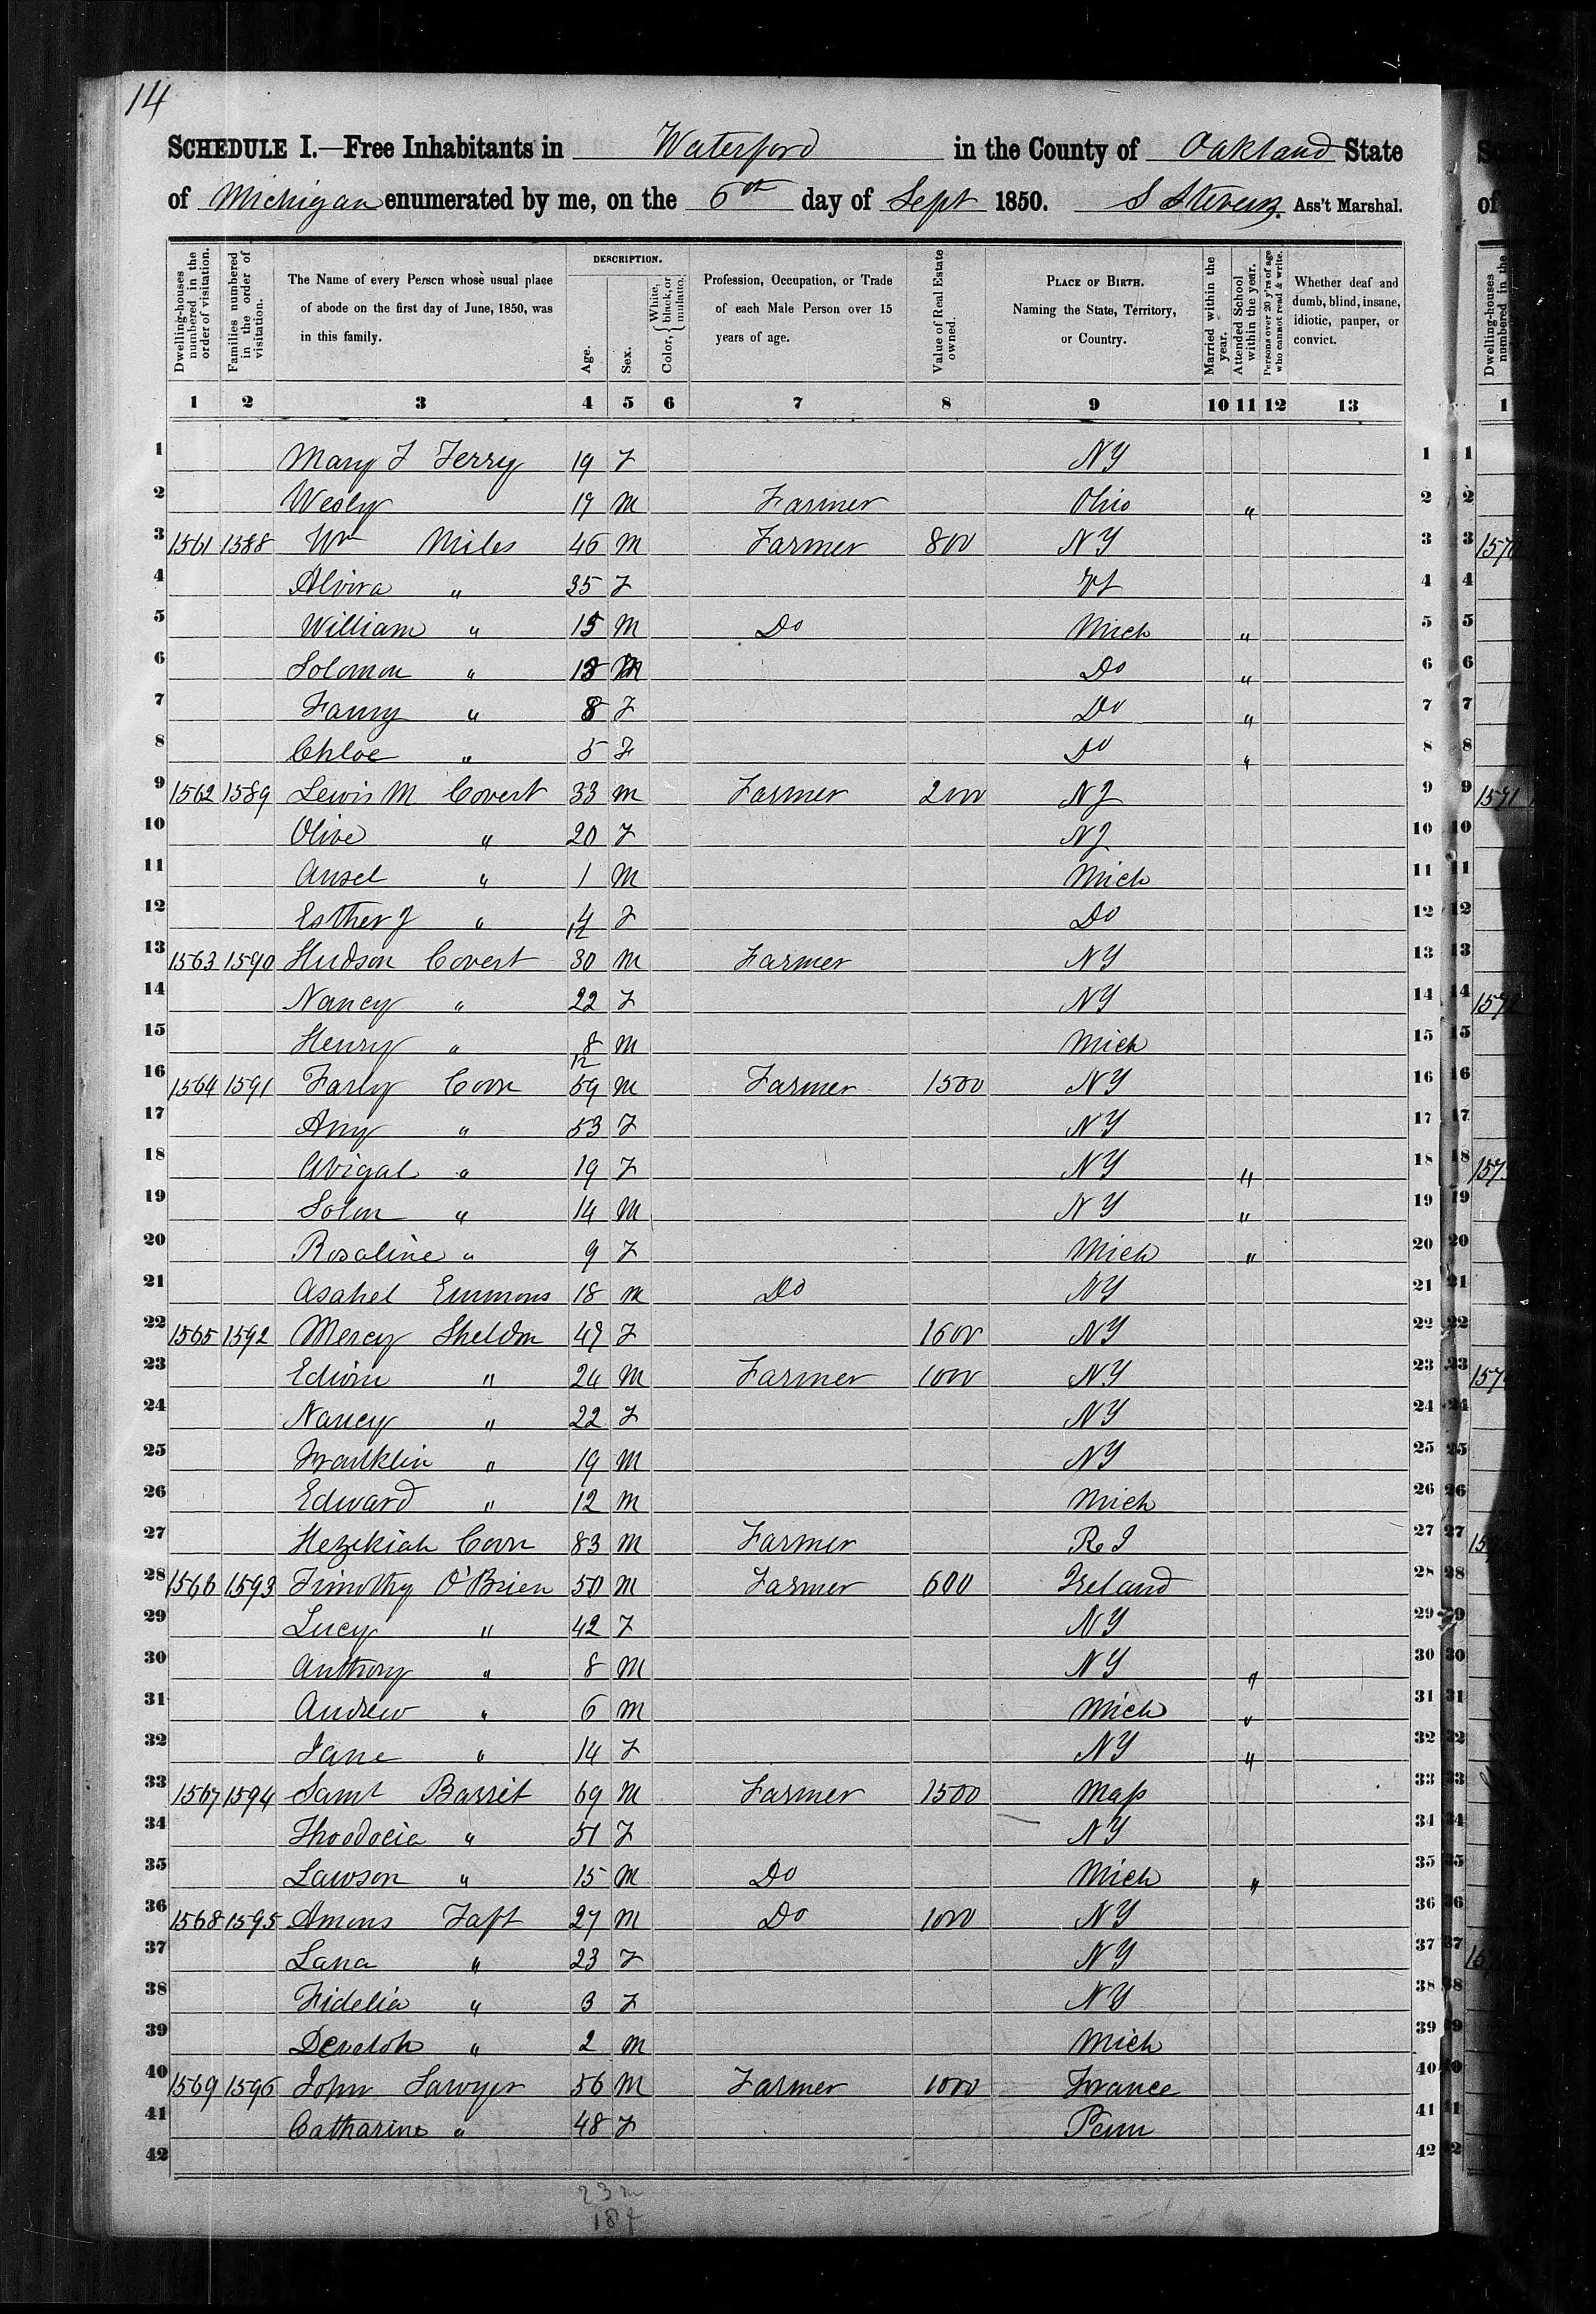 14
SCHEDULE I.—Free Inhabitants in Waterford in the County of Oakland State
of Michigan enumerated by me, on the 6th day of Sept 1850. S Stevens Ass't Marshal.
Dwelling-houses numbered in the order of visitation.
Families numbered in the order of visitation.
The Name of every Person whose usual place of abode on the first day of June, 1850, was in this family.
DESCRIPTION.
Age.
Sex.
Color, { White, black, or mulatto.
Profession, Occupation, or Trade of each Male Person over 15 years of age.
Value of Real Estate owned.
PLACE OF BIRTH. Naming the State, Territory, or Country.
Married within the year.
Attended School within the year.
Persons over 20 y'rs of age who cannot read & write.
Whether deaf and dumb, blind, insane, idiotic, pauper, or convict.
1 2 3 4 5 6 7 8 9 10 11 12 13
1 Mary F Terry 19 F NY 1
2 Wesly 19 M Farmer Ohio " 2
3 1561 1588 Wm Miles 46 M Farmer 800 NY 3
4 Alvira " 35 F Vt 4
5 William " 15 M Do Mich " 5
6 Solomon " 13 M Do " 6
7 Fanny " 8 F Do " 7
8 Chloe " 5 F Do " 8
9 1562 1589 Lewis M Covert 33 M Farmer 2000 NJ 9
10 Olive " 20 F NJ 10
11 Ansel " 1 M Mich 11
12 Esther J " 4/12 F Do 12
13 1563 1590 Hudson Covert 30 M Farmer NY 13
14 Nancy " 22 F NY 14
15 Henry " 8/12 M Mich 15
16 1564 1591 Farly Coon 59 M Farmer 1500 NY 16
17 Amy " 53 F NY 17
18 Abigal " 19 F NY " 18
19 Solon " 14 M NY " 19
20 Rosaline " 9 F Mich " 20
21 Asahel Emmons 18 M Do NY 21
22 1565 1592 Mercy Sheldon 49 F 1600 NY 22
23 Edwin " 24 M Farmer 1000 NY 23
24 Nancy " 22 F NY 24
25 Franklin " 19 M NY 25
26 Edward " 12 M Mich 26
27 Hezekiah Coon 83 M Farmer R I 27
28 1566 1593 Timothy O'Brien 50 M Farmer 600 Ireland 28
29 Lucy " 42 F NY 29
30 Anthony " 8 M NY " 30
31 Andrew " 6 M Mich " 31
32 Jane " 14 F NY " 32
33 1567 1594 Saml Barrit 69 M Farmer 1500 Mass 33
34 Thoodocia " 51 F NY 34
35 Lawson " 15 M Do Mich " 35
36 1568 1595 Amons Taft 27 M Do 1000 NY 36
37 Lana " 23 F NY 37
38 Fidelia " 3 F NY 38
39 " 2 M Mich 39
40 1569 1596 John Sawyer 56 M Farmer 1000 France 40
41 Catharine " 48 F Penn 41
42 42
23 m
18 f